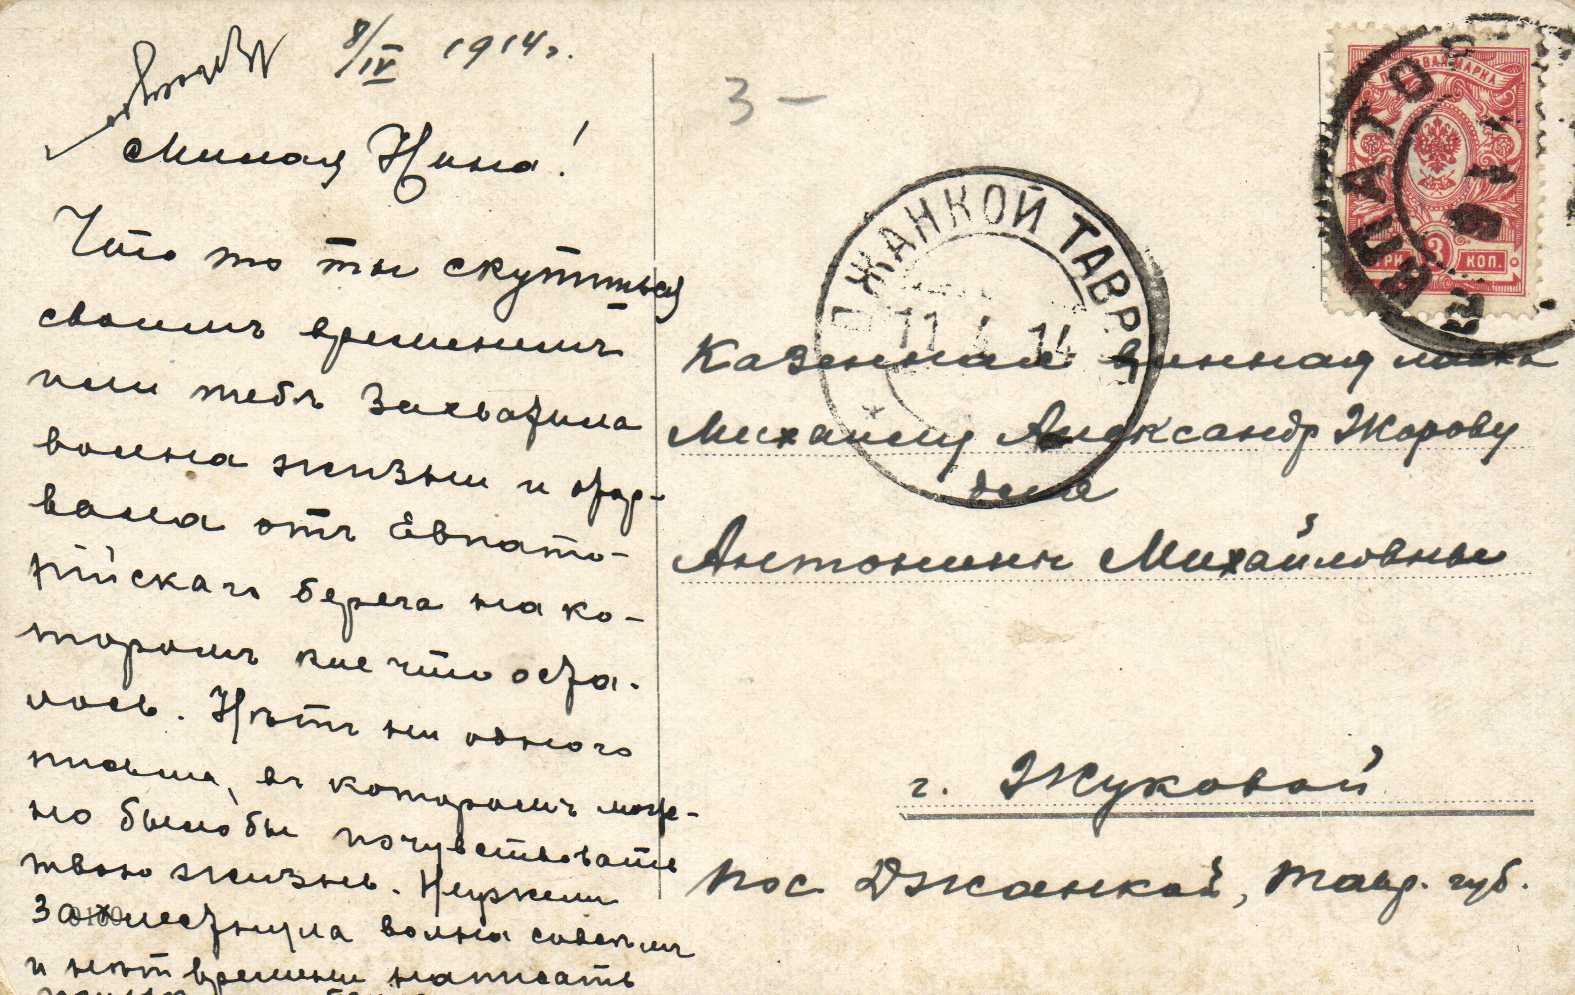 8/IV 1914 г.
Милая Нина!
Что то ты скупишься
своимъ временемъ
или тебя захватила
волна жизни и отор-
вала отъ Евпато-
рійскаго берега на ко-
торомъ кое что оста-
лось. Нѣтъ ни одного
письма, въ которомъ мож-
но было бы почувствовать
твою жизнь. Неужели
захлестнула волна совсѣмъ
и нѣтъ времени написать
3 –
ПОЧТОВАЯ МАРКА
3
ТРИ КОП.
ЕВПАТОР
ДЖАНКОЙ ТАВР.
11 4 14
Казенная винная лавка
Михаилу Александр Жорову
для
Антонины Михайловны
г. Жуковой
пос. Джанкой, Тавр. губ.